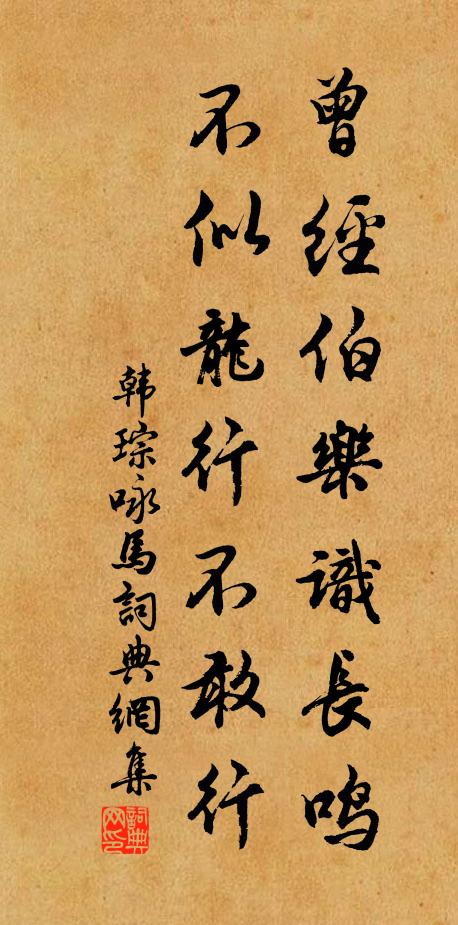 曾經伯樂識長鳴
不似龍行不敢行
韩琮咏馬詞典網集
詞典网印